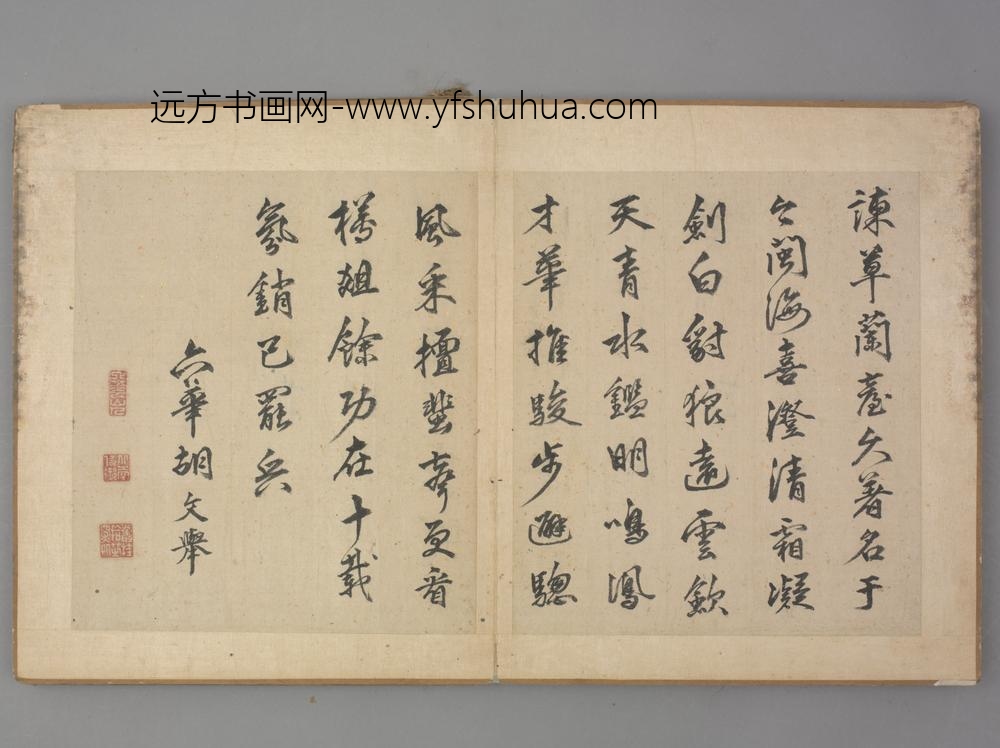 远方书画网-www.yfshuhua.com
諫草蘭臺久著名于
今閩海喜澄清霜凝
劍白豺狼遠雲歛
天青水鑑明鳴鳳
才華推駿步避驄
風采擅蜚聲更看
樽俎餘功在十載
氛銷已罷兵
六華胡文舉